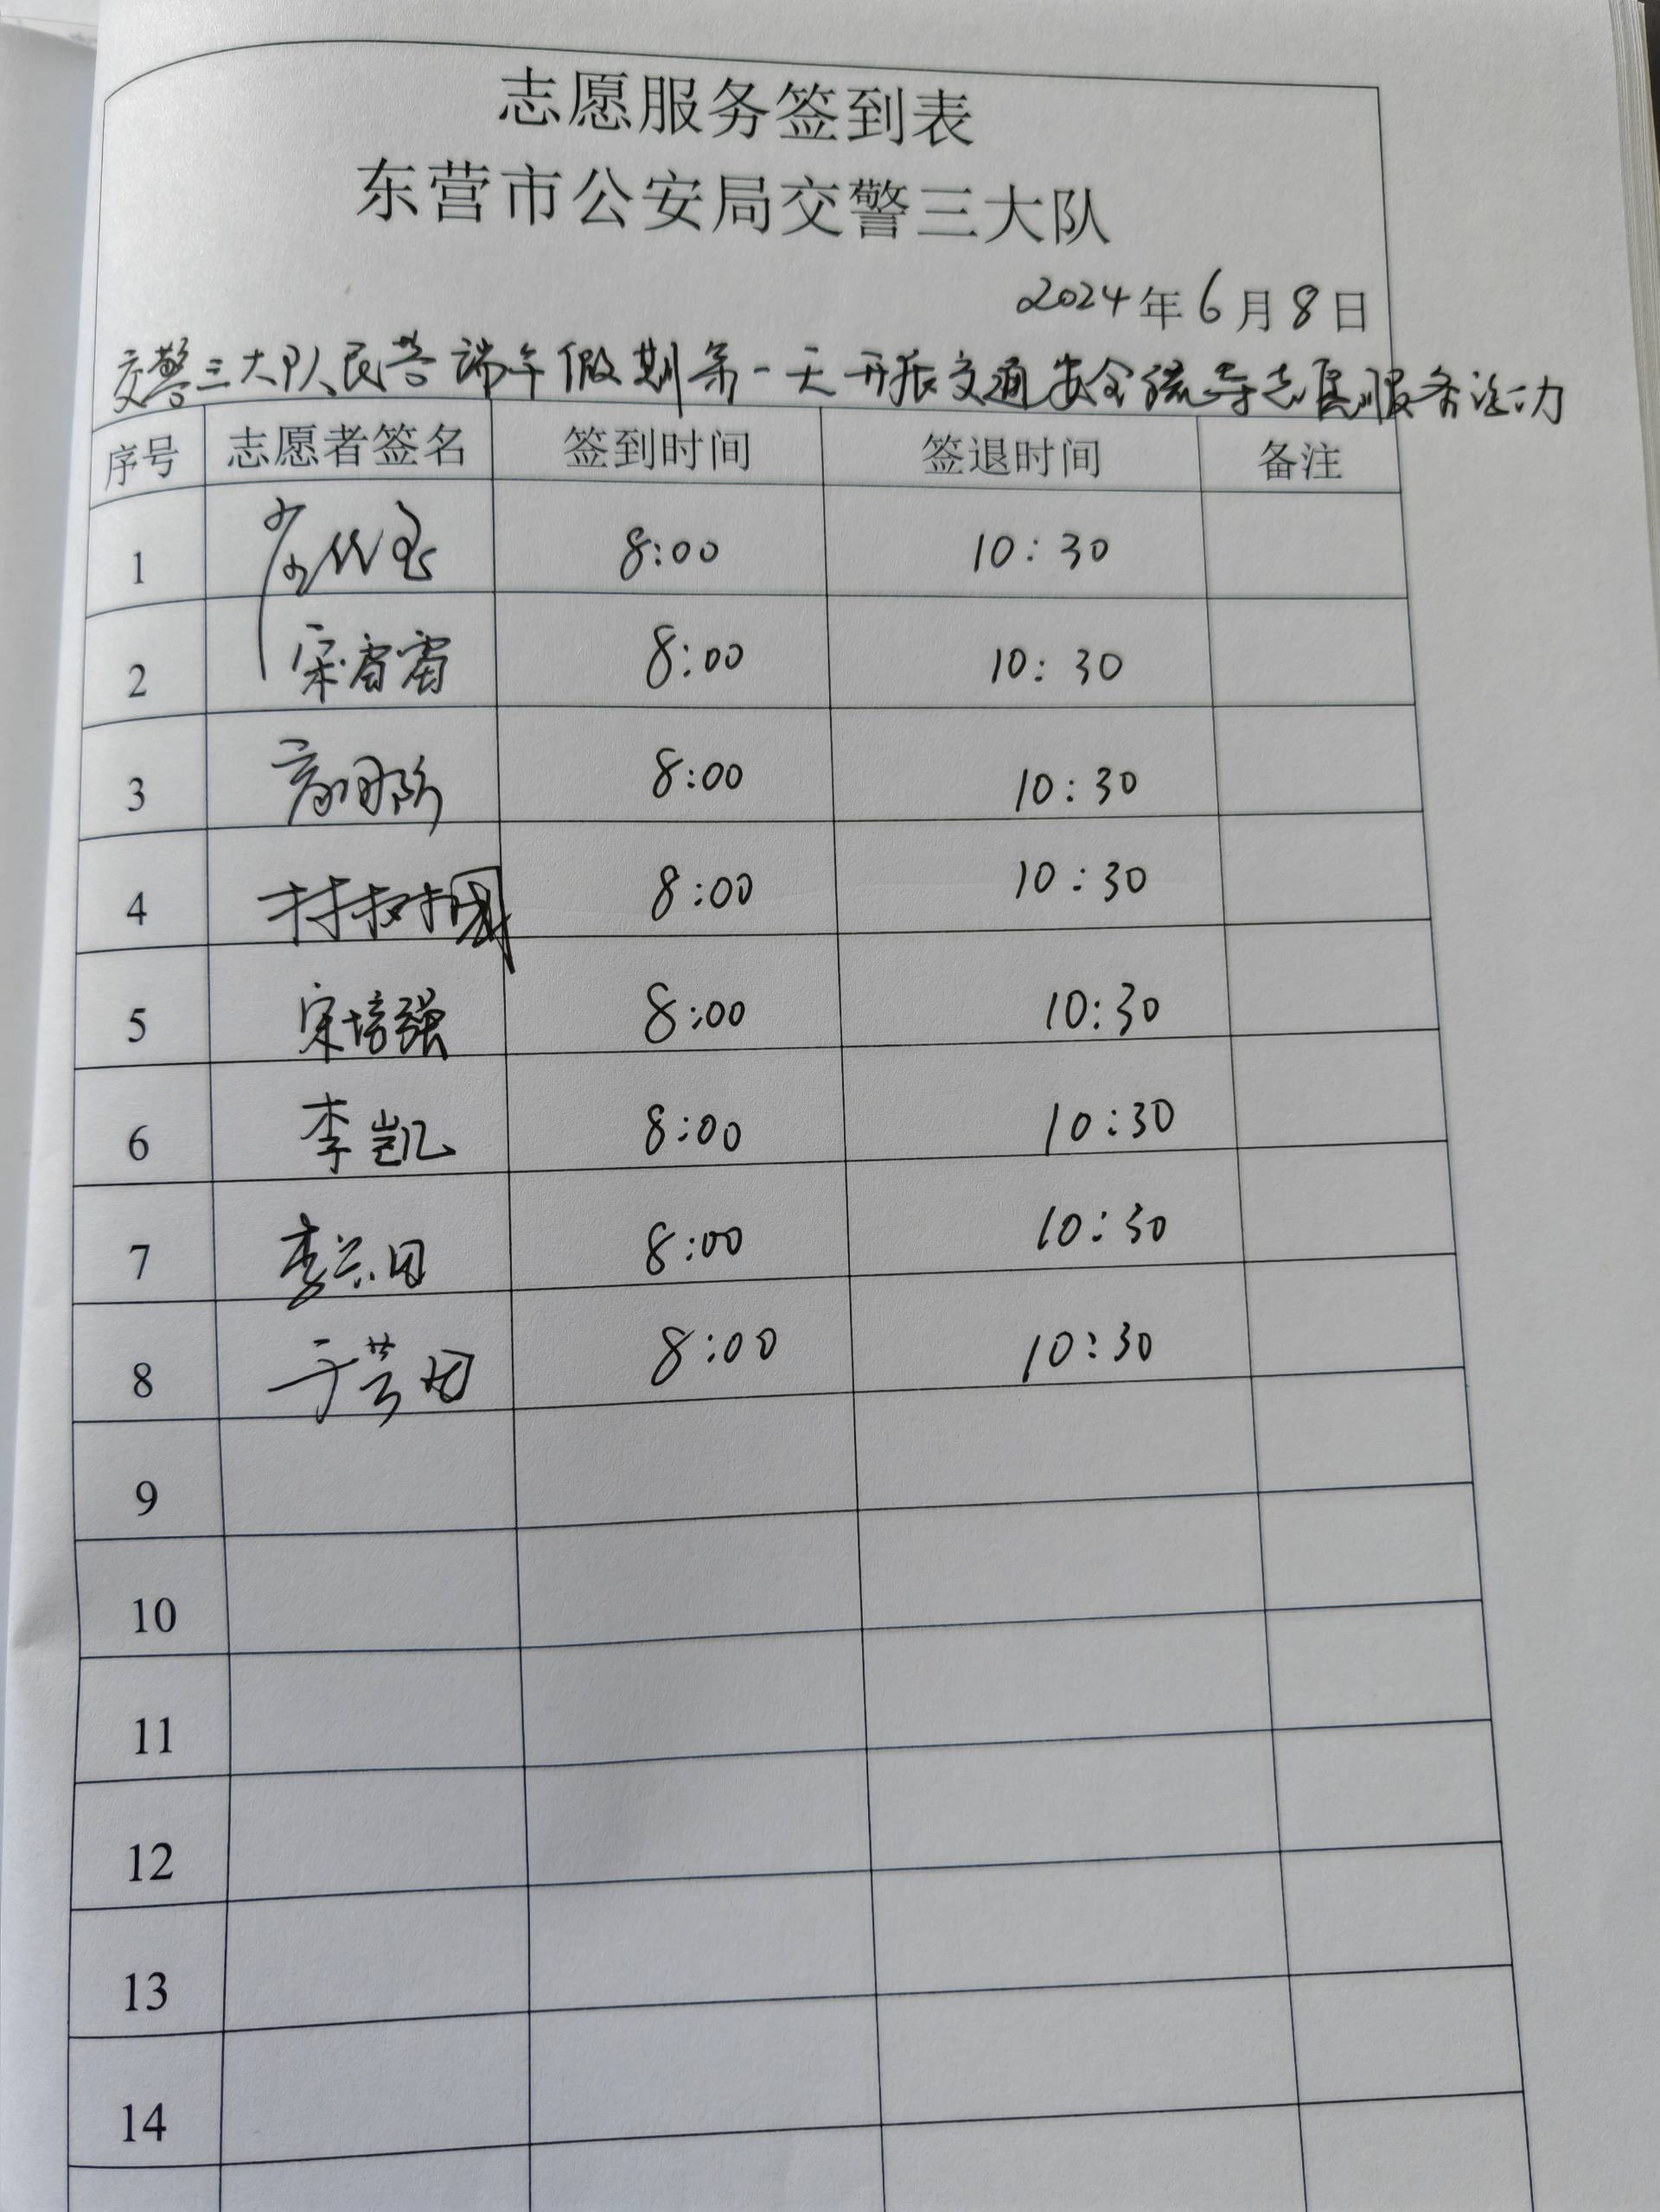 志愿服务签到表
东营市公安局交警三大队
2024年6月8日
交警三大队民警端午假期第一天开展交通安全疏导志愿服务活动
序号 志愿者签名 签到时间 签退时间 备注
1 8:00 10:30
2 宋雷雷 8:00 10:30
3 8:00 10:30
4 8:00 10:30
5 宋培强 8:00 10:30
6 李凯 8:00 10:30
7 8:00 10:30
8 8:00 10:30
9
10
11
12
13
14